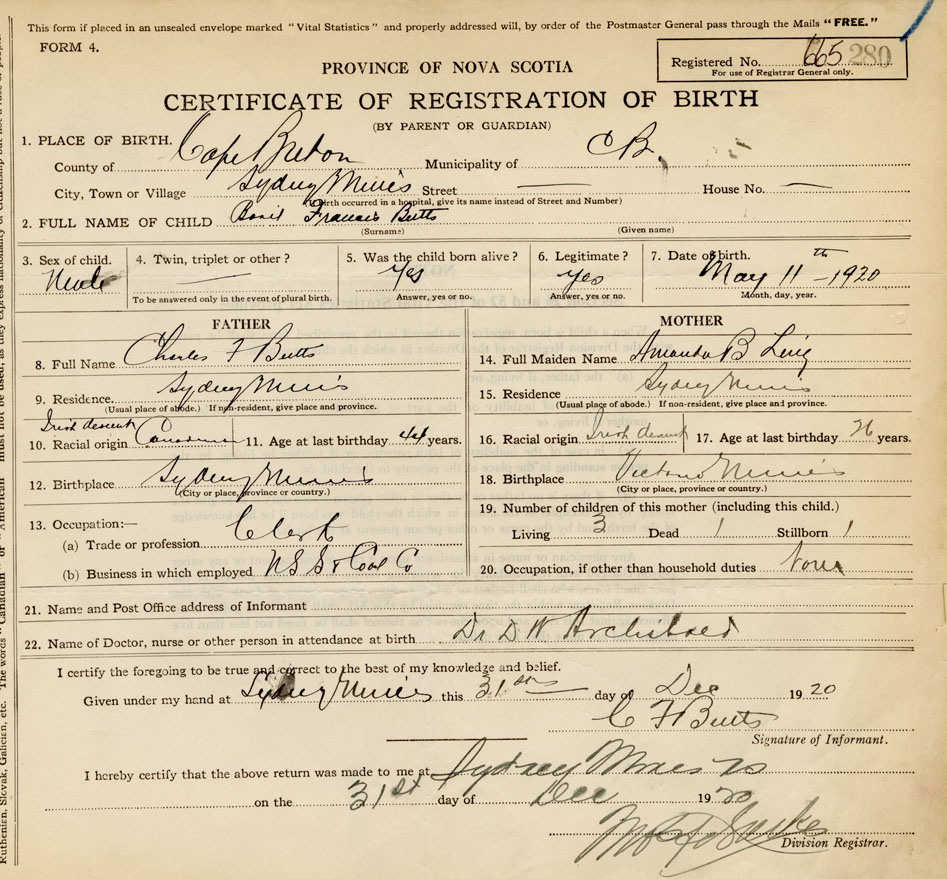 This form if placed in an unsealed envelope marked "Vital Statistics" and properly addressed will, by order of the Postmaster General pass through the Mails "FREE."
FORM 4.
Registered No. 665 280
For use of Registrar General only.
PROVINCE OF NOVA SCOTIA
CERTIFICATE OF REGISTRATION OF BIRTH
(BY PARENT OR GUARDIAN)
1. PLACE OF BIRTH.
County of Cape Breton Municipality of C B.
City, Town or Village Sydney Mines Street — House No. —
(If birth occurred in a hospital, give its name instead of Street and Number)
2. FULL NAME OF CHILD Basil Francis Butts
(Surname) (Given name)
3. Sex of child. Male
4. Twin, triplet or other? —
To be answered only in the event of plural birth.
5. Was the child born alive? Yes
Answer, yes or no.
6. Legitimate? Yes
Answer, yes or no.
7. Date of birth. May 11th - 1920
Month, day, year.
FATHER
8. Full Name Charles F Butts
9. Residence. Sydney Mines
(Usual place of abode.) If non-resident, give place and province.
Irish descent
10. Racial origin Canadian 11. Age at last birthday 44 years.
12. Birthplace Sydney Mines
(City or place, province or country.)
13. Occupation:—
(a) Trade or profession Clerk
(b) Business in which employed N S S & Coal Co
MOTHER
14. Full Maiden Name Amanda B
15. Residence. Sydney Mines
(Usual place of abode.) If non-resident, give place and province.
16. Racial origin Irish descent 17. Age at last birthday years.
18. Birthplace Victoria Mines
(City or place, province or country.)
19. Number of children of this mother (including this child.)
Living 3 Dead 1 Stillborn 1
20. Occupation, if other than household duties None
21. Name and Post Office address of Informant
22. Name of Doctor, nurse or other person in attendance at birth Dr D W Archibald
I certify the foregoing to be true and correct to the best of my knowledge and belief.
Given under my hand at Sydney Mines this 31 day of Dec 1920
C F Butts
Signature of Informant.
I hereby certify that the above return was made to me at Sydney Mines
on the 31st day of Dec 1920
Division Registrar.